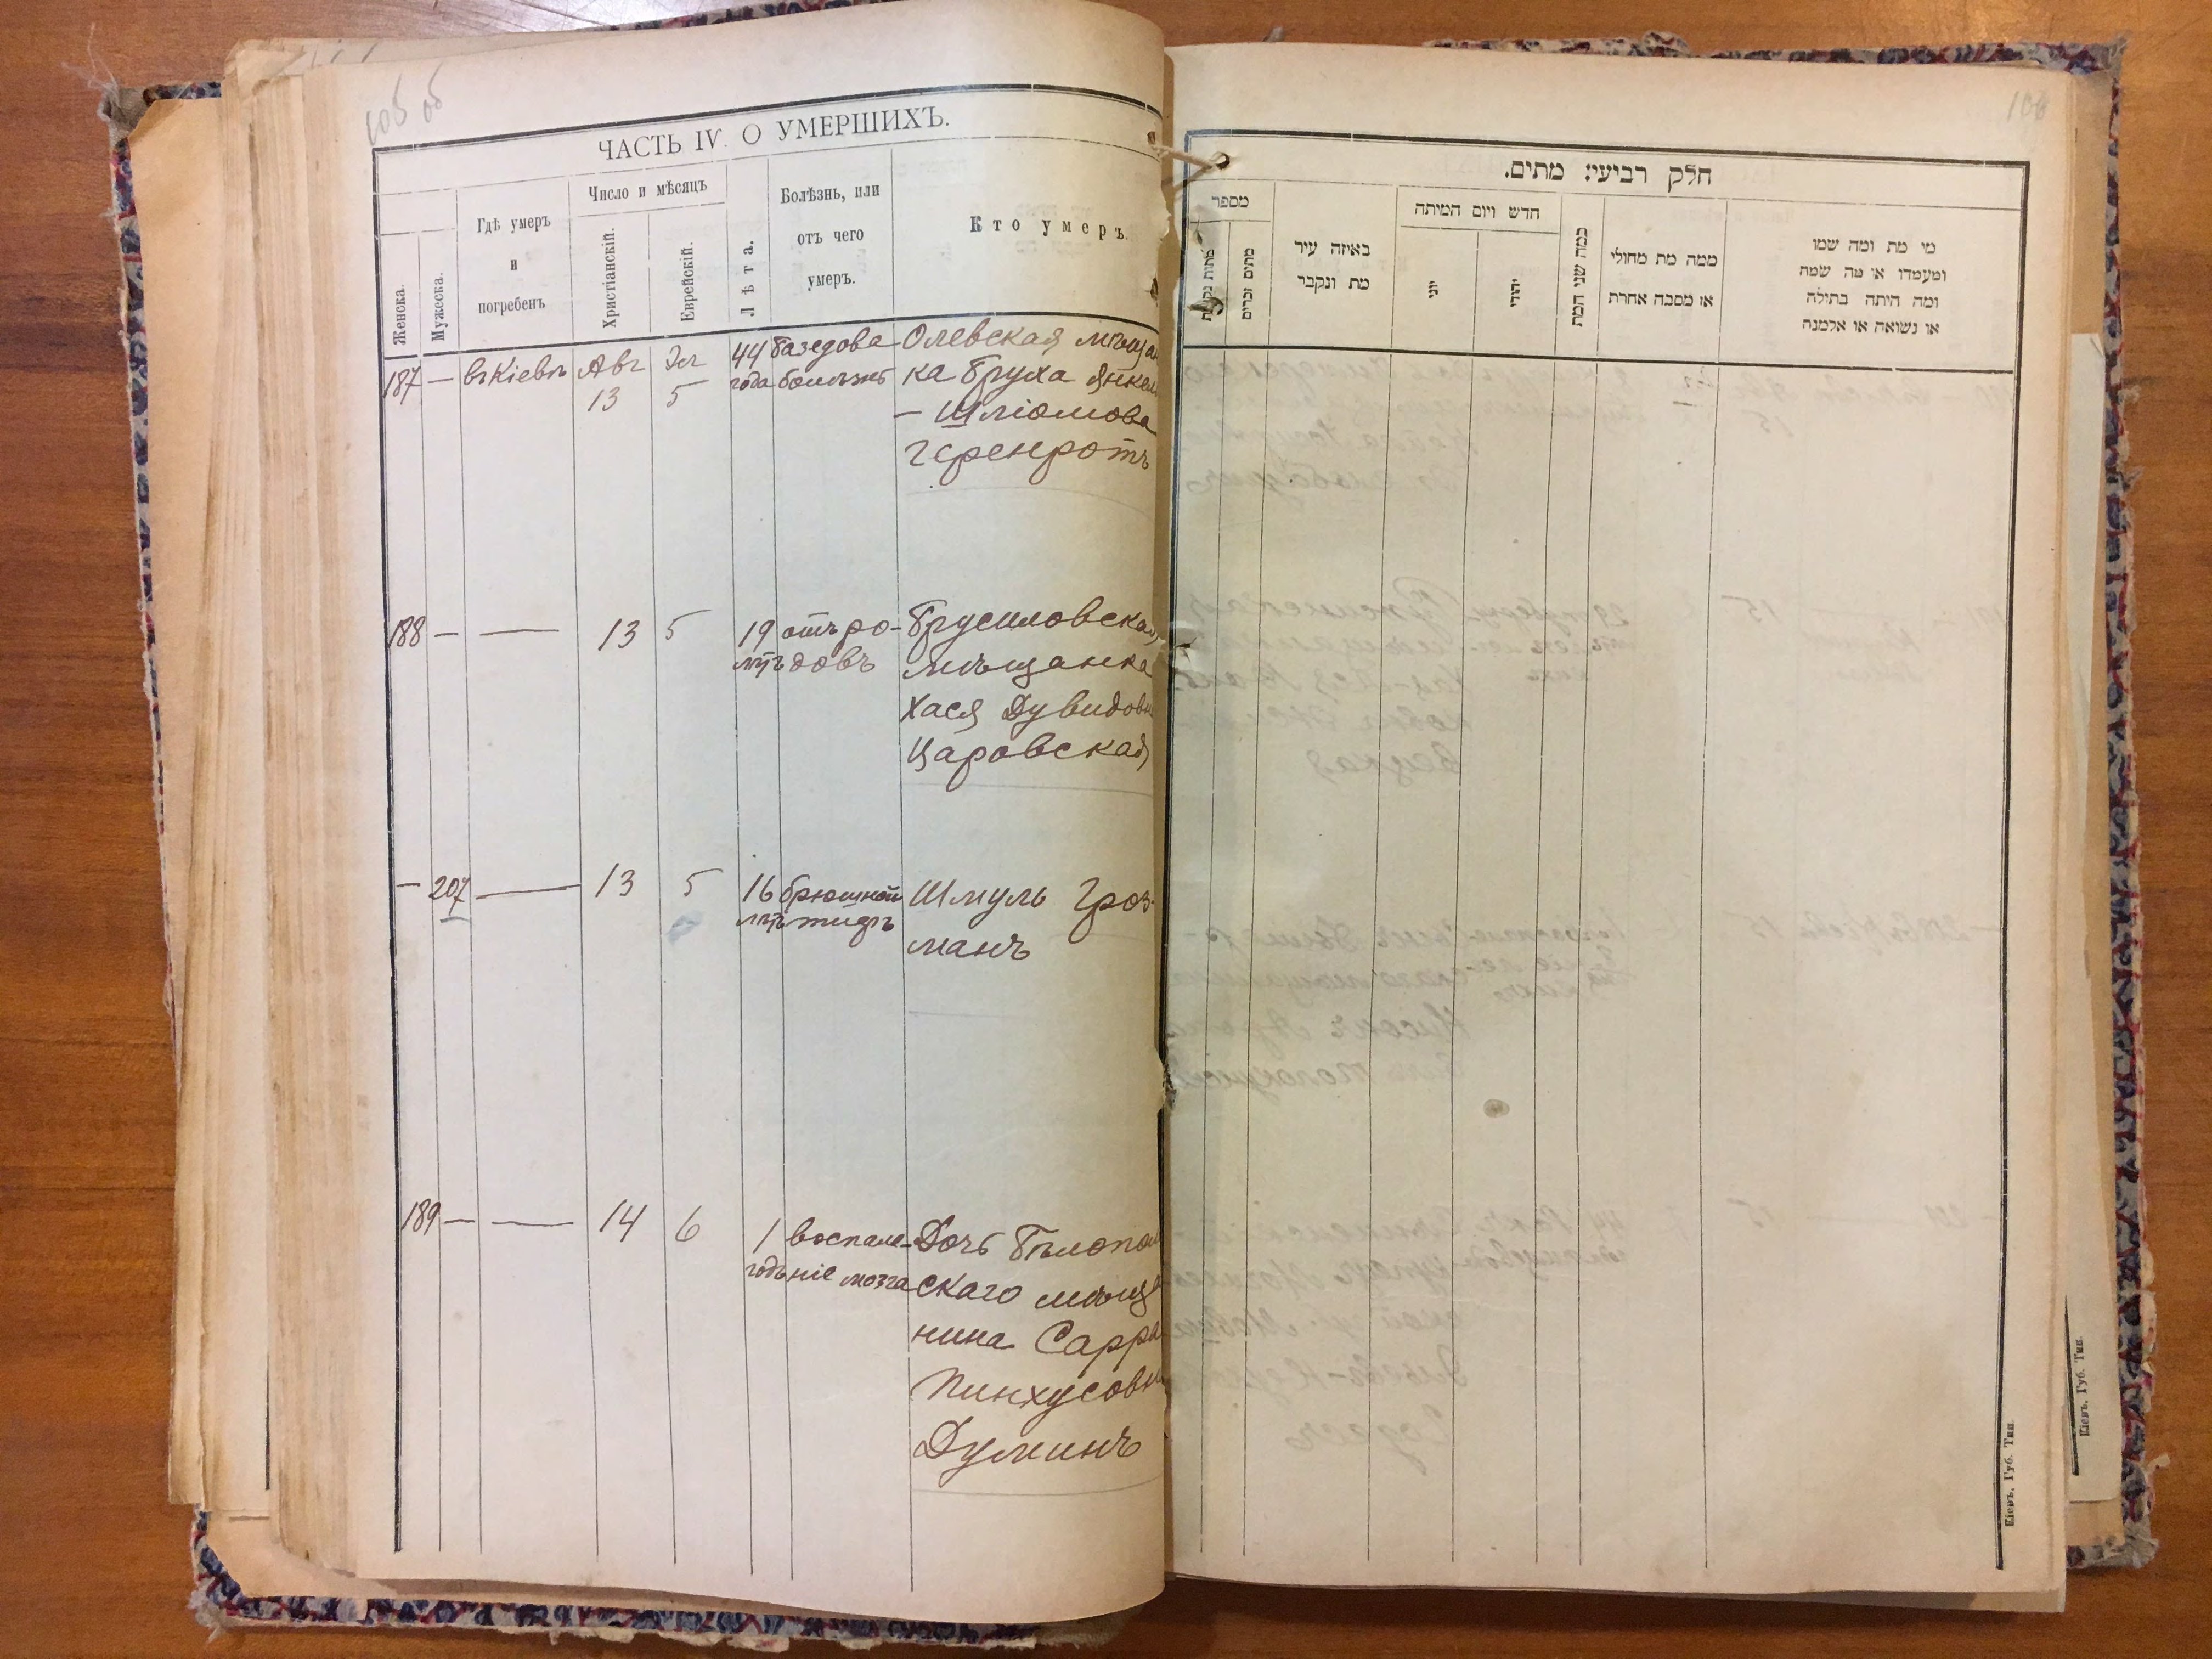 105 об
ЧАСТЬ IV. О УМЕРШИХЪ.
Женска.
Мужеска.
Гдѣ умеръ
и
погребенъ
Число и мѣсяцъ
Христіанскій.
Еврейскій.
Лѣта.
Болѣзнь, или
отъ чего
умеръ.
Кто умеръ.
187 — въ Кіевѣ Авг Эл 44 базедова Олевская мѣща
13 5 года болѣзнь ка Бруха Янкел
— Шліомова
Геренротъ
188 — — 13 5 19 отъ ро- Брусиловская
лѣтъ довъ мѣщанка
Хася Дувидовна
Царовская
— 207 — 13 5 16 брюшной Шмуль Гроз-
лѣтъ тифъ манъ
189 — — 14 6 1 воспале- Дочь Бѣлопол
годъ ніе мозга скаго мѣща
нина Сарра
Пинхусовна
Думинъ
חלק רביעי: מתים.
מספר
מתים זכרים
באיזה עיר
מת ונקבר
חדש ויום המיתה
יוני
יהודי
כמה שני המת
ממה מת מחולי
או מסבה אחרת
מי מת ומה שמו
ומעמדו או מה שמה
ומה היתה בתולה
או נשואה או אלמנה
Кіевъ, Губ. Тип.
Кіевъ, Губ. Тип.